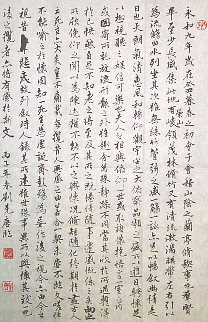 永和九年歲在癸丑暮春之初會于會稽山陰之蘭亭脩稧事也羣賢
畢至少長咸集此地有崇山峻領茂林脩竹又有清流激湍暎帶左右引以
為流觴曲水列坐其次雖無絲竹管弦之盛一觴一詠亦足以暢敘幽情是
日也天朗氣清惠風和暢仰觀宇宙之大俯察品類之盛所以遊目騁懷足
以極視聽之娛信可樂也夫人之相與俯仰一世或取諸懷抱悟言一室之內
或因寄所託放浪形骸之外雖趣舍萬殊靜躁不同當其欣於所遇暫得
於己快然自足不知老之將至及其所之既惓情隨事遷感慨係之矣向之
所欣俛仰之間以為陳迹猶不能不以之興懷況脩短隨化終期於盡古人
云死生亦大矣豈不痛哉每攬昔人興感之由若合一契未嘗不臨文嗟悼
不能喻之於懷固知一死生為虛誕齊彭殤為妄作後之視今亦由今之
視昔悲夫故列敘時人錄其所述雖世殊事異所以興懷其致一也
後之攬者亦將有感於斯文 丙子年春劉